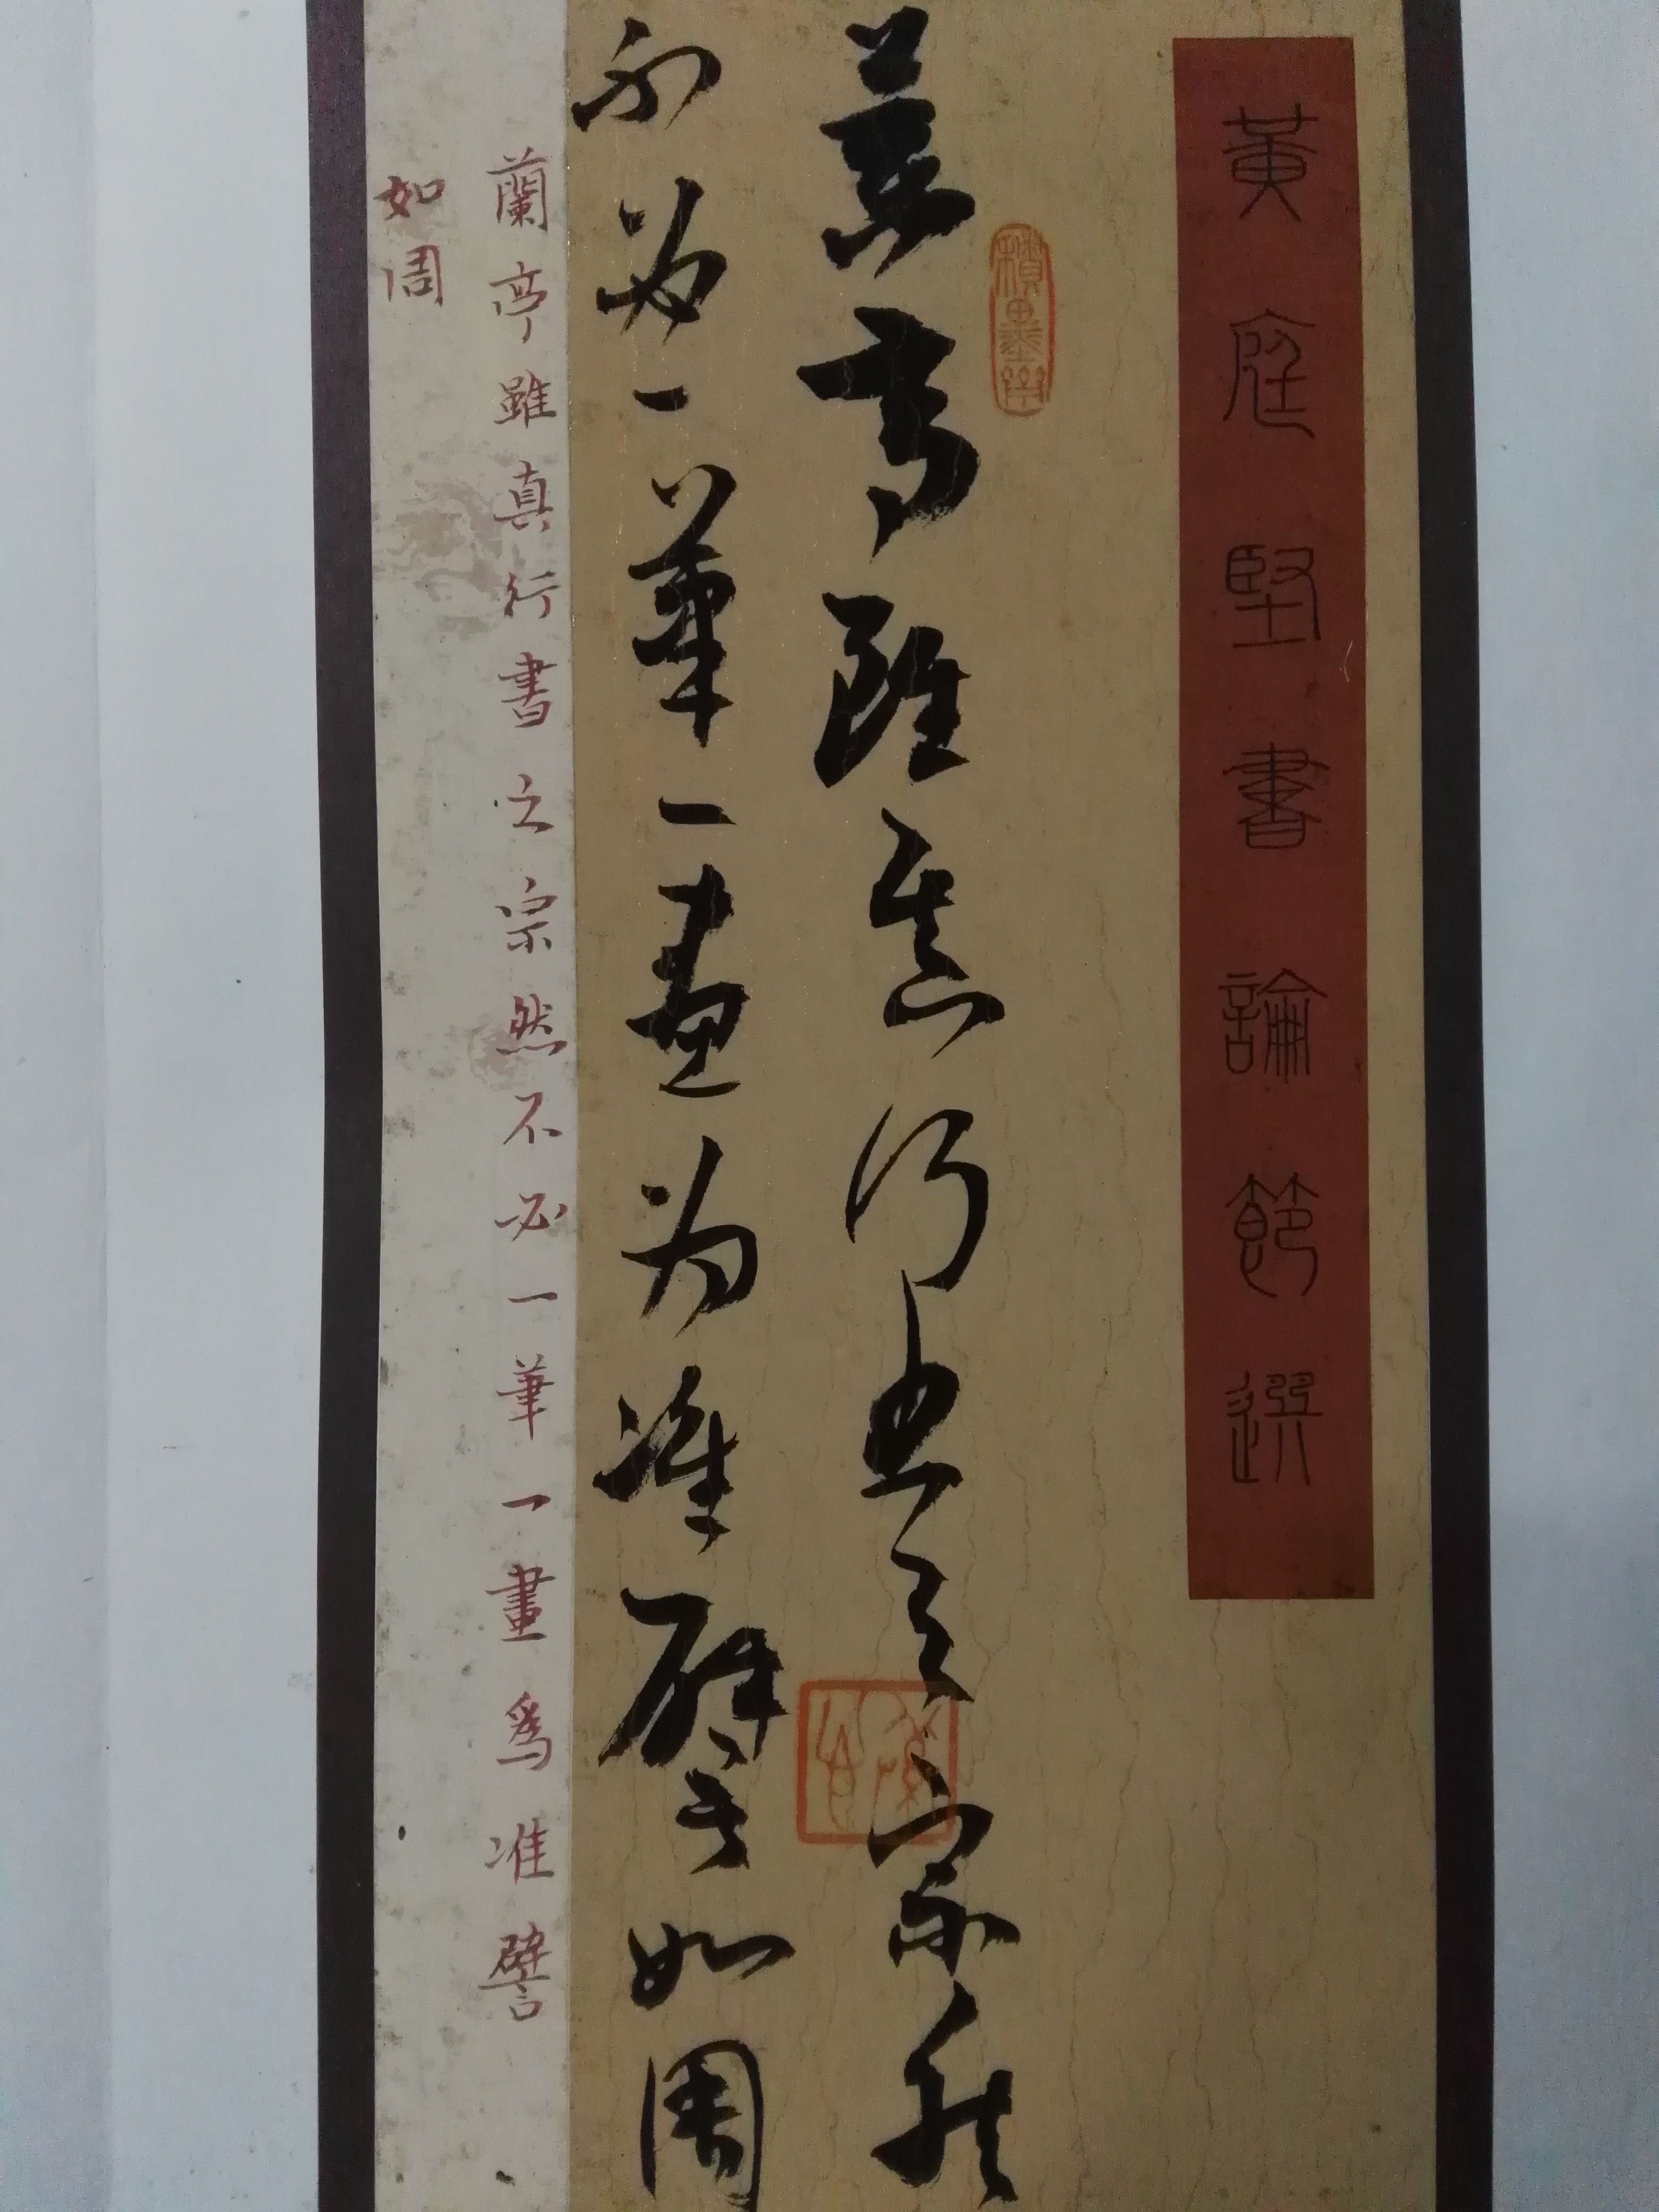 黃庭堅書論節選
蘭亭雖真行書之宗然
不必一筆一畫為准譬如周
蘭亭雖真行書之宗然不必一筆一畫爲准譬
如周